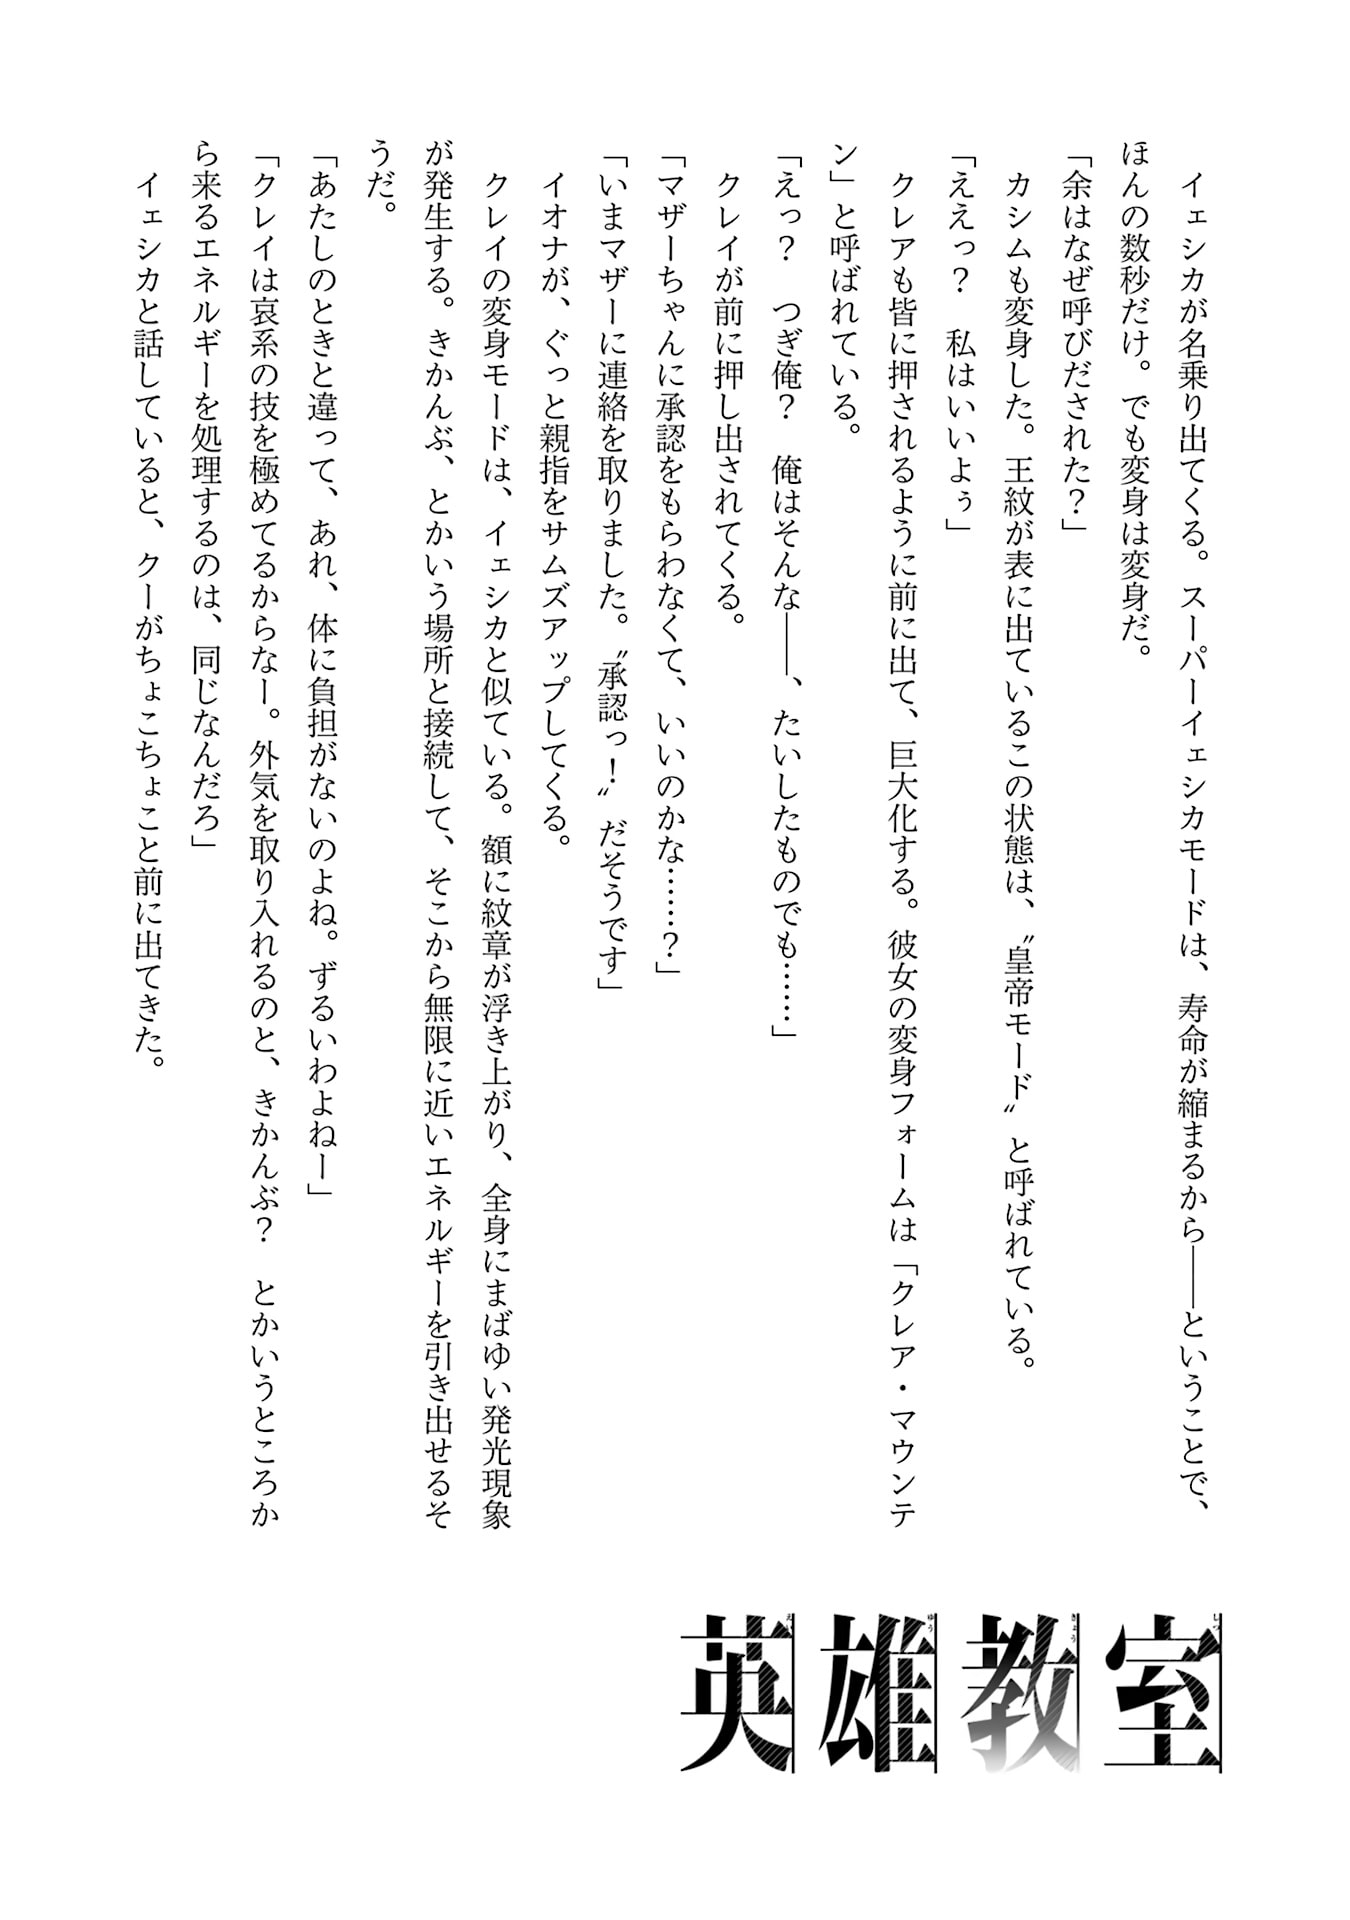 イェシカが名乗り出てくる。スーパーイェシカモードは、寿命が縮まるから――ということで、
ほんの数秒だけ。でも変身は変身だ。
「余はなぜ呼びだされた？」
　カシムも変身した。王紋が表に出ているこの状態は、〝皇帝モード〟と呼ばれている。
「ええっ？　私はいいよぅ」
　クレアも皆に押されるように前に出て、巨大化する。彼女の変身フォームは「クレア・マウンテ
ン」と呼ばれている。
「えっ？　つぎ俺？　俺はそんな――、たいしたものでも……」
　クレイが前に押し出されてくる。
「マザーちゃんに承認をもらわなくて、いいのかな……？」
「いまマザーに連絡を取りました。〝承認っ！〟だそうです」
　イオナが、ぐっと親指をサムズアップしてくる。
　クレイの変身モードは、イェシカと似ている。額に紋章が浮き上がり、全身にまばゆい発光現象
が発生する。きかんぶ、とかいう場所と接続して、そこから無限に近いエネルギーを引き出せるそ
うだ。
「あたしのときと違って、あれ、体に負担がないのよね。ずるいわよねー」
「クレイは哀系の技を極めてるからなー。外気を取り入れるのと、きかんぶ？　とかいうところか
ら来るエネルギーを処理するのは、同じなんだろ」
　イェシカと話していると、クーがちょこちょこと前に出てきた。
英雄教室
えいゆうきょうしつ